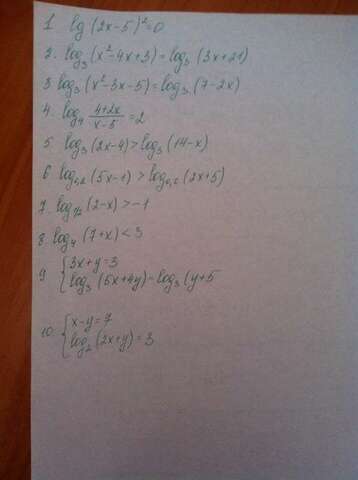 1. lg (2x-5)²=0
2. log₃(x²-4x+3)=log₃(3x+21)
3. log₃(x²-3x-5)=log₃(7-2x)
4. log₄ (4+2x)/(x-5)=2
5. log₃(2x-4)>log₃(14-x)
6 log₀,₂(5x-1)>log₀,₂(2x+5)
7. log₁/₂(2-x)>-1
8 log₄(7+x)<3
9 { 3x+y=3
log₃(5x+4y)=log₃(y+5
10. { x-y=7
log₂(2x+y)=3